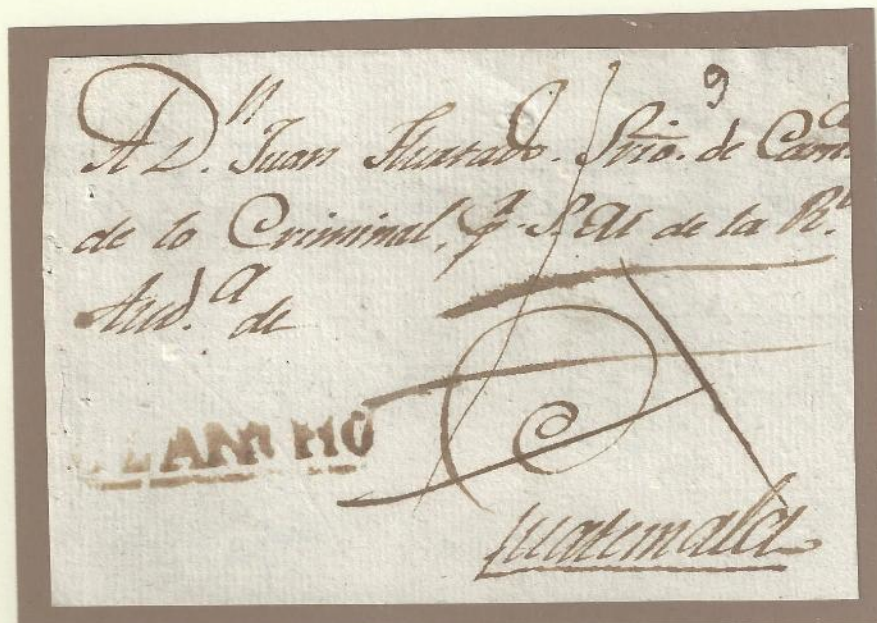 A D.n Juan Hurtado. Srio. de Cam.a
de lo Criminal, y de la R.l
Aud.a de
Guatemala